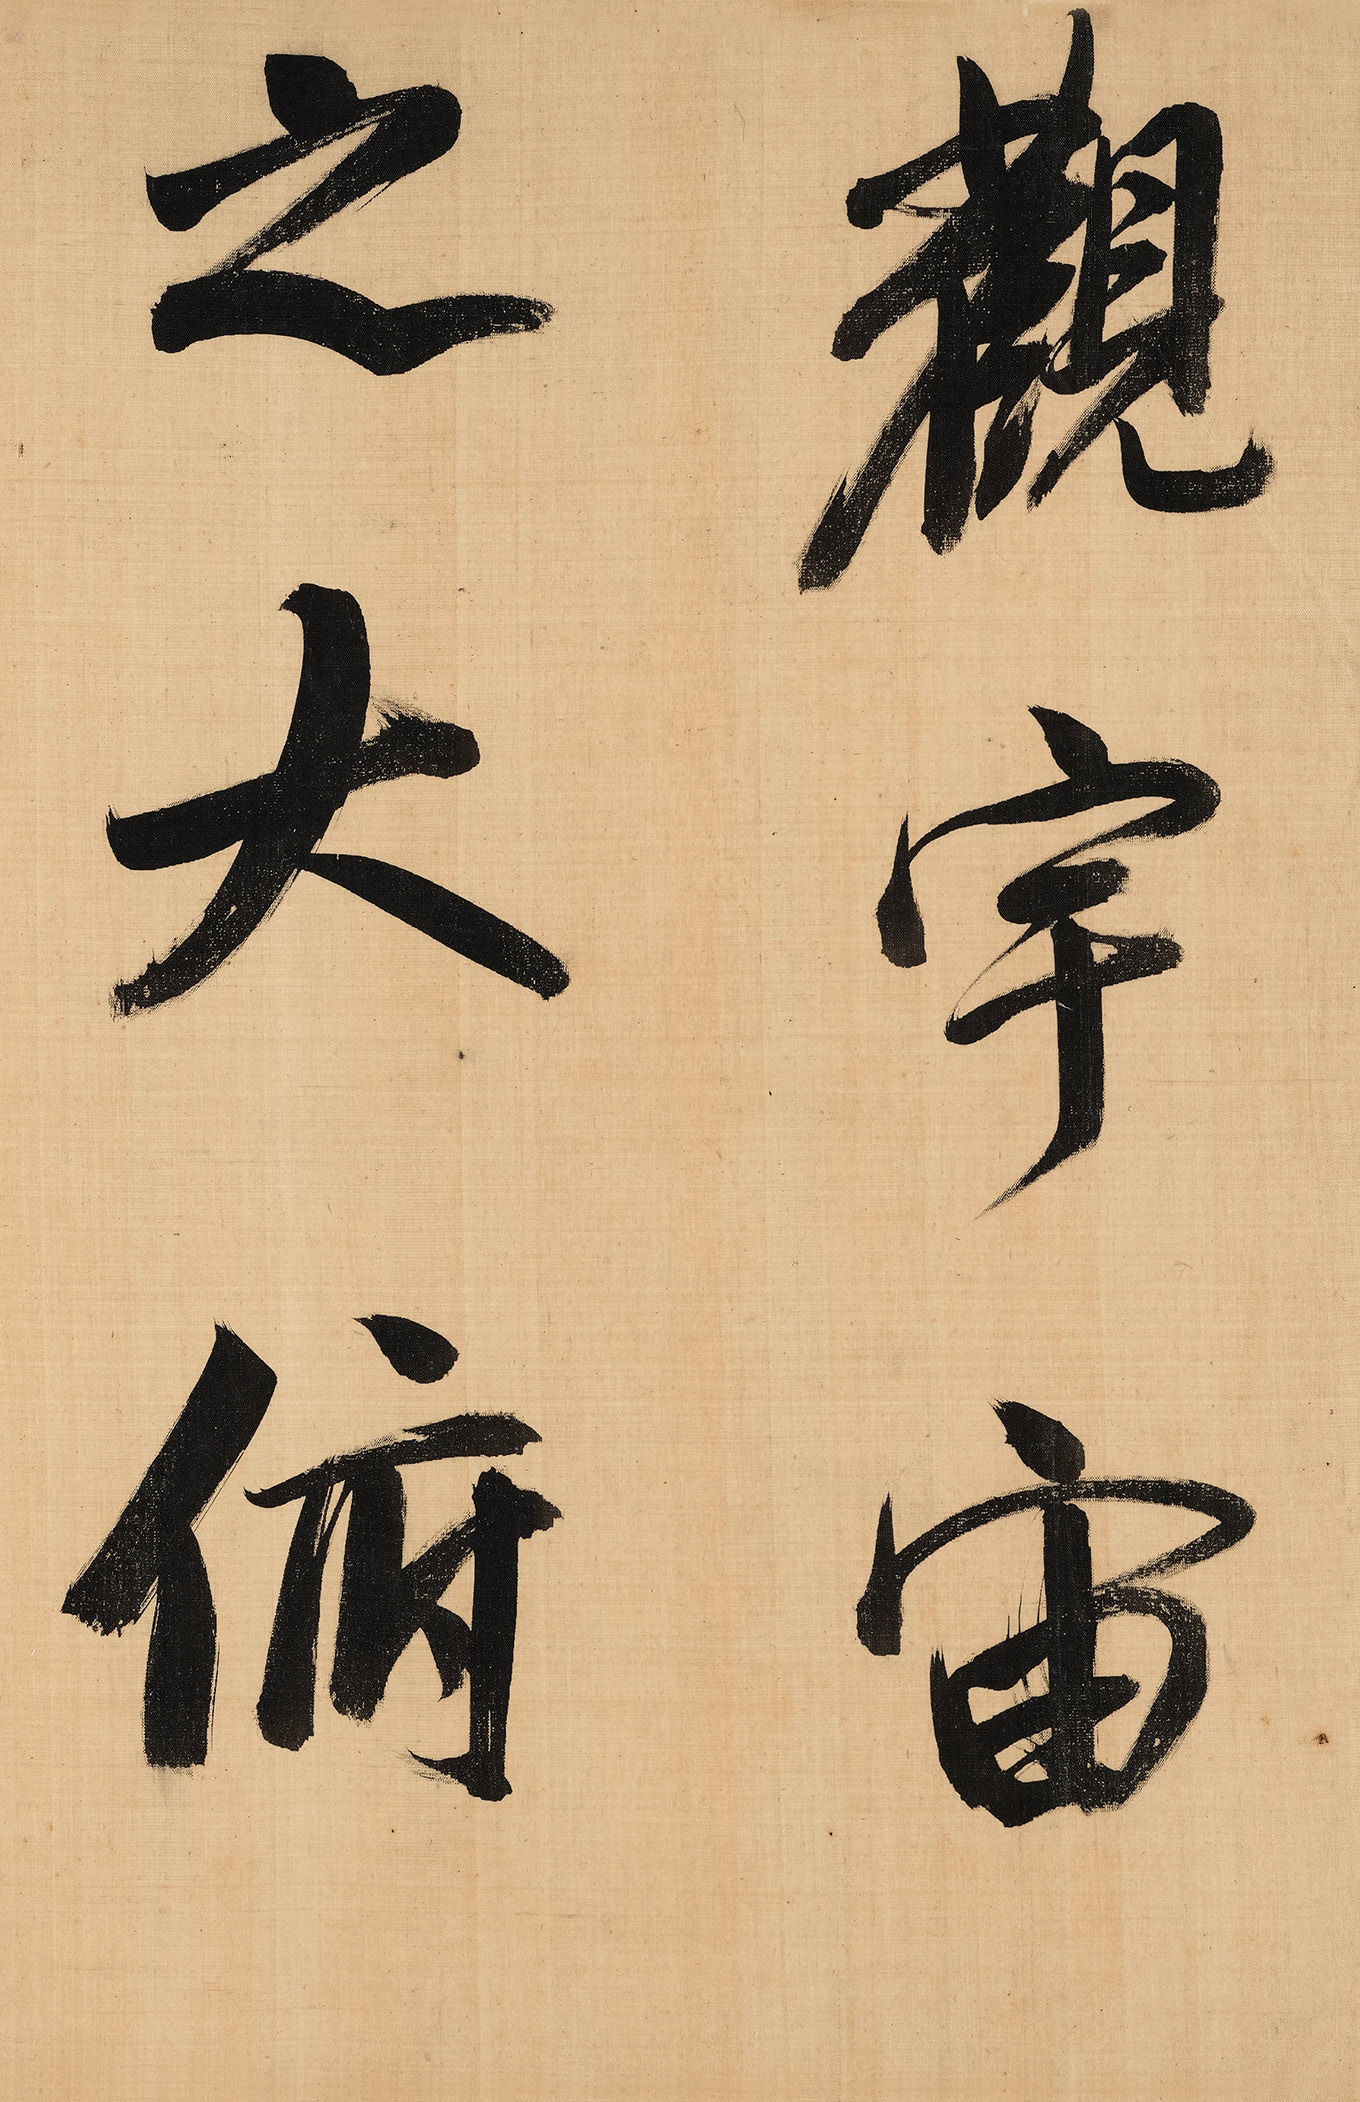 觀宇宙
之大俯